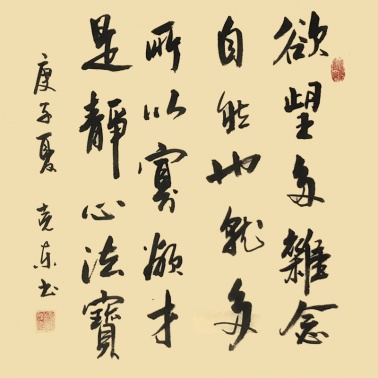 欲望多雜念
自然也就多
所以寡欲才
是靜心法寶
庚子夏 克东书